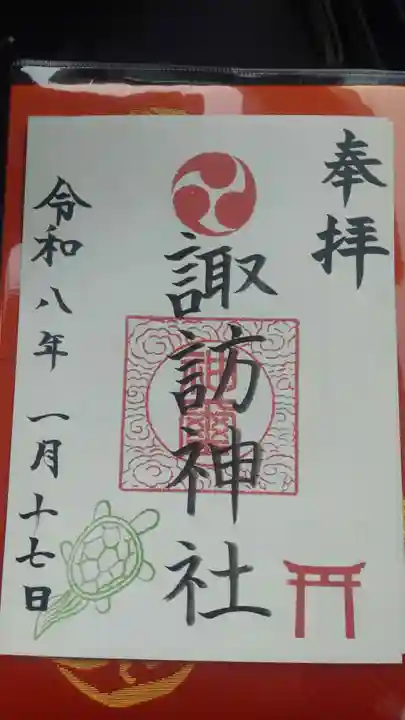 奉拝
諏訪神社
令和八年 一月十七日